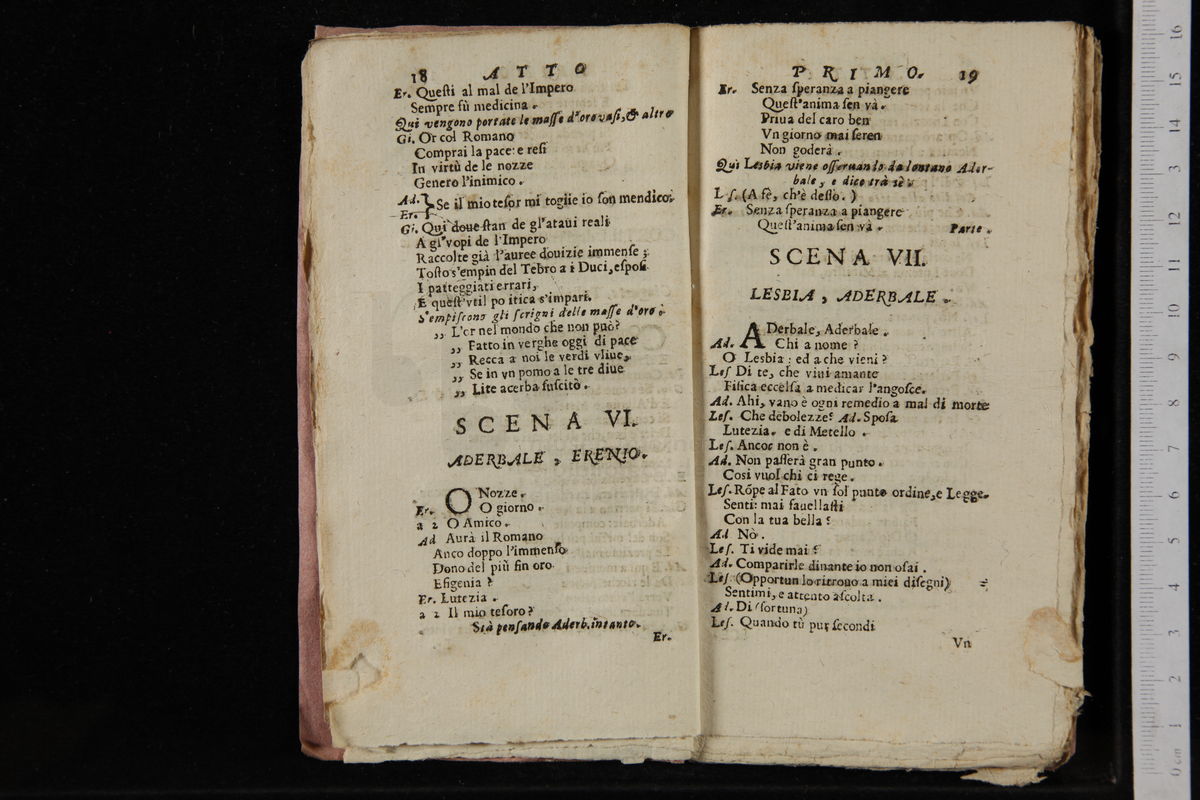 18 ATTO
Er. Queſti al mal de l'Impero
Sempre fù medicina.
Qui vengono portate le maſſe d'oro vaſi, & altro
Gi. Or col Romano
Comprai la pace: e reſi
In virtù de le nozze
Genero l'inimico.
Ad. Er. } Se il mio teſor mi toglie io ſon mendico.
Gi. Quì doue ſtan de gl'ataui reali
A gl'vopi de l'Impero
Raccolte già l'auree douizie immenſe;
Toſto s'empin del Tebro a i Duci, eſpoſi
I patteggiati errari,
E queſt'vtil po itica s'impari.
S'empiſcono gli ſcrigni delle maſſe d'oro.
„ L'or nel mondo che non può?
„ Fatto in verghe oggi di pace
„ Recca a noi le verdi vliue,
„ Se in vn pomo a le tre diue
„ Lite acerba ſuſcitò.
SCENA VI.
ADERBALE, ERENIO.
O Nozze.
Er. O giorno.
a 2 O Amico.
Ad Aurà il Romano
Anco doppo l'immenſo
Dono del più fin oro
Efigenia?
Er. Lutezia.
a 2 Il mio teſoro?
Stà penſando Aderb. intanto.
Er.
PRIMO. 19
Er. Senza ſperanza a piangere
Queſt'anima ſen và.
Priua del caro ben
Vn giorno mai ſeren
Non goderà.
Quì Lesbia viene oſſeruando da lontano Ader-
bale, e dice trà sè.
Leſ. (A fè, ch'è deſſo.)
Er. Senza ſperanza a piangere
Queſt'anima ſen và. Parte.
SCENA VII.
LESBIA, ADERBALE.
ADerbale, Aderbale.
Ad. Chi a nome?
O Lesbia: ed a che vieni?
Leſ Di te, che viui amante
Fiſica eccelſa a medicar l'angoſce.
Ad. Ahi, vano è ogni remedio a mal di morte
Leſ. Che debolezze? Ad. Spoſa
Lutezia. e di Metello.
Leſ. Ancor non è.
Ad. Non paſſerà gran punto.
Coſi vuol chi ci rege.
Leſ. Rõpe al Fato vn ſol punto ordine, e Legge.
Senti: mai fauellaſti
Con la tua bella?
Ad Nò.
Leſ. Ti vide mai?
Ad. Comparirle dinante io non oſai.
Leſ. (Opportun lo ritrouo a miei diſegni)
Sentimi, e attento aſcolta.
Ad. Di (fortuna)
Leſ. Quando tù pur ſecondi
Vn